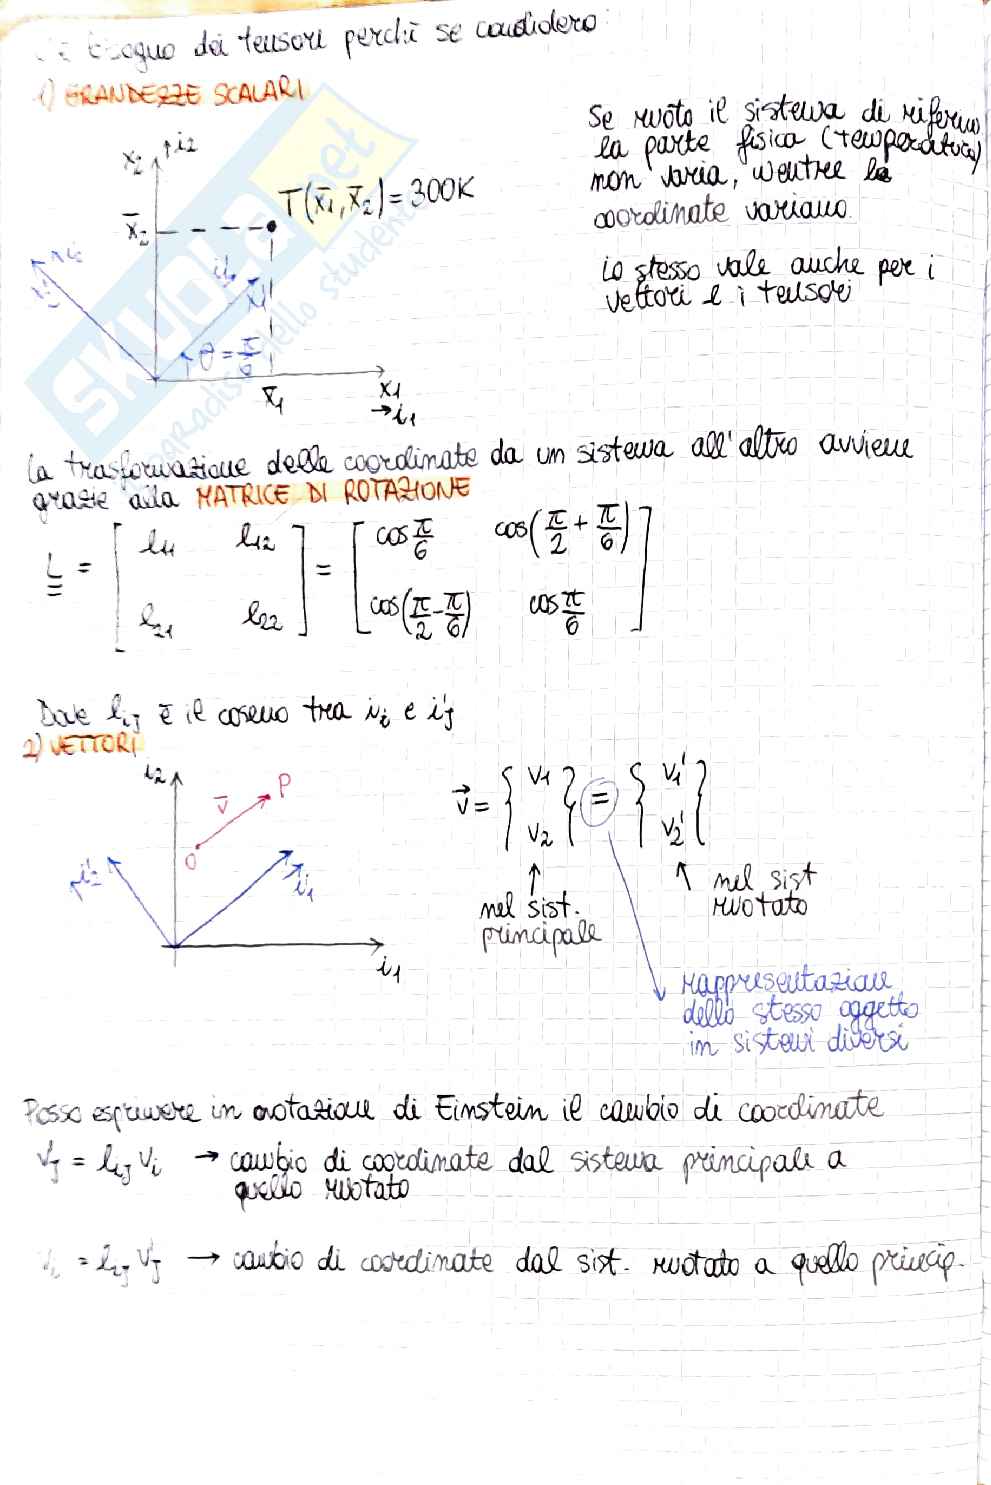 bisogno dei tensori perchè se considero
1) GRANDEZZE SCALARI
x₂ ↑i₂
x̄₂
T(x̄₁, x̄₂) = 300K
i'₂
i'₁
θ = π/6
x̄₁
x₁
→ i₁
Se ruoto il sistema di riferim
la parte fisica (temperatura)
non varia, mentre le
coordinate variano.
Lo stesso vale anche per i
vettori e i tensori
SKUOLA.net
paradiso dello studente
La trasformazione delle coordinate da un sistema all'altro avviene
grazie alla MATRICE DI ROTAZIONE
L = [ l₁₁ l₁₂ ] = [ cos π/6 cos(π/2 + π/6) ]
[ l₂₁ l₂₂ ] [ cos(π/2 - π/6) cos π/6 ]
Dove lᵢⱼ è il coseno tra iᵢ e i'ⱼ
2) VETTORI
i₂
v̄
P
O
i'₂
i'₁
i₁
v⃗ = { v₁ } = { v₁' }
{ v₂ } { v₂' }
↑ nel sist.
principale
↑ nel sist
ruotato
rappresentazione
dello stesso oggetto
in sistemi diversi
Posso esprimere in notazione di Einstein il cambio di coordinate
v'ⱼ = lᵢⱼ vᵢ → cambio di coordinate dal sistema principale a
quello ruotato
vᵢ = lᵢⱼ v'ⱼ → cambio di coordinate dal sist. ruotato a quello princip.